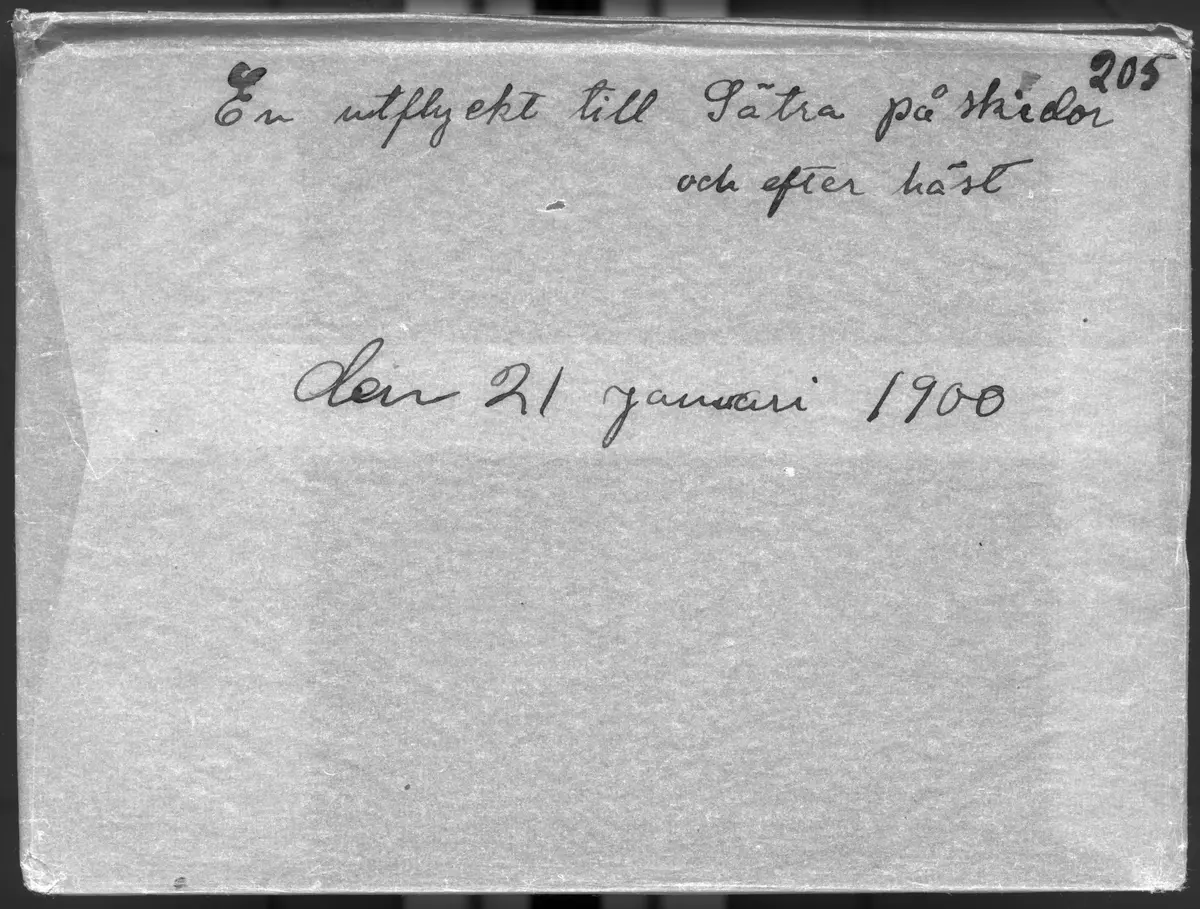 205
En utflyckt till Sätra på skidor
och efter häst
den 21 januari 1900